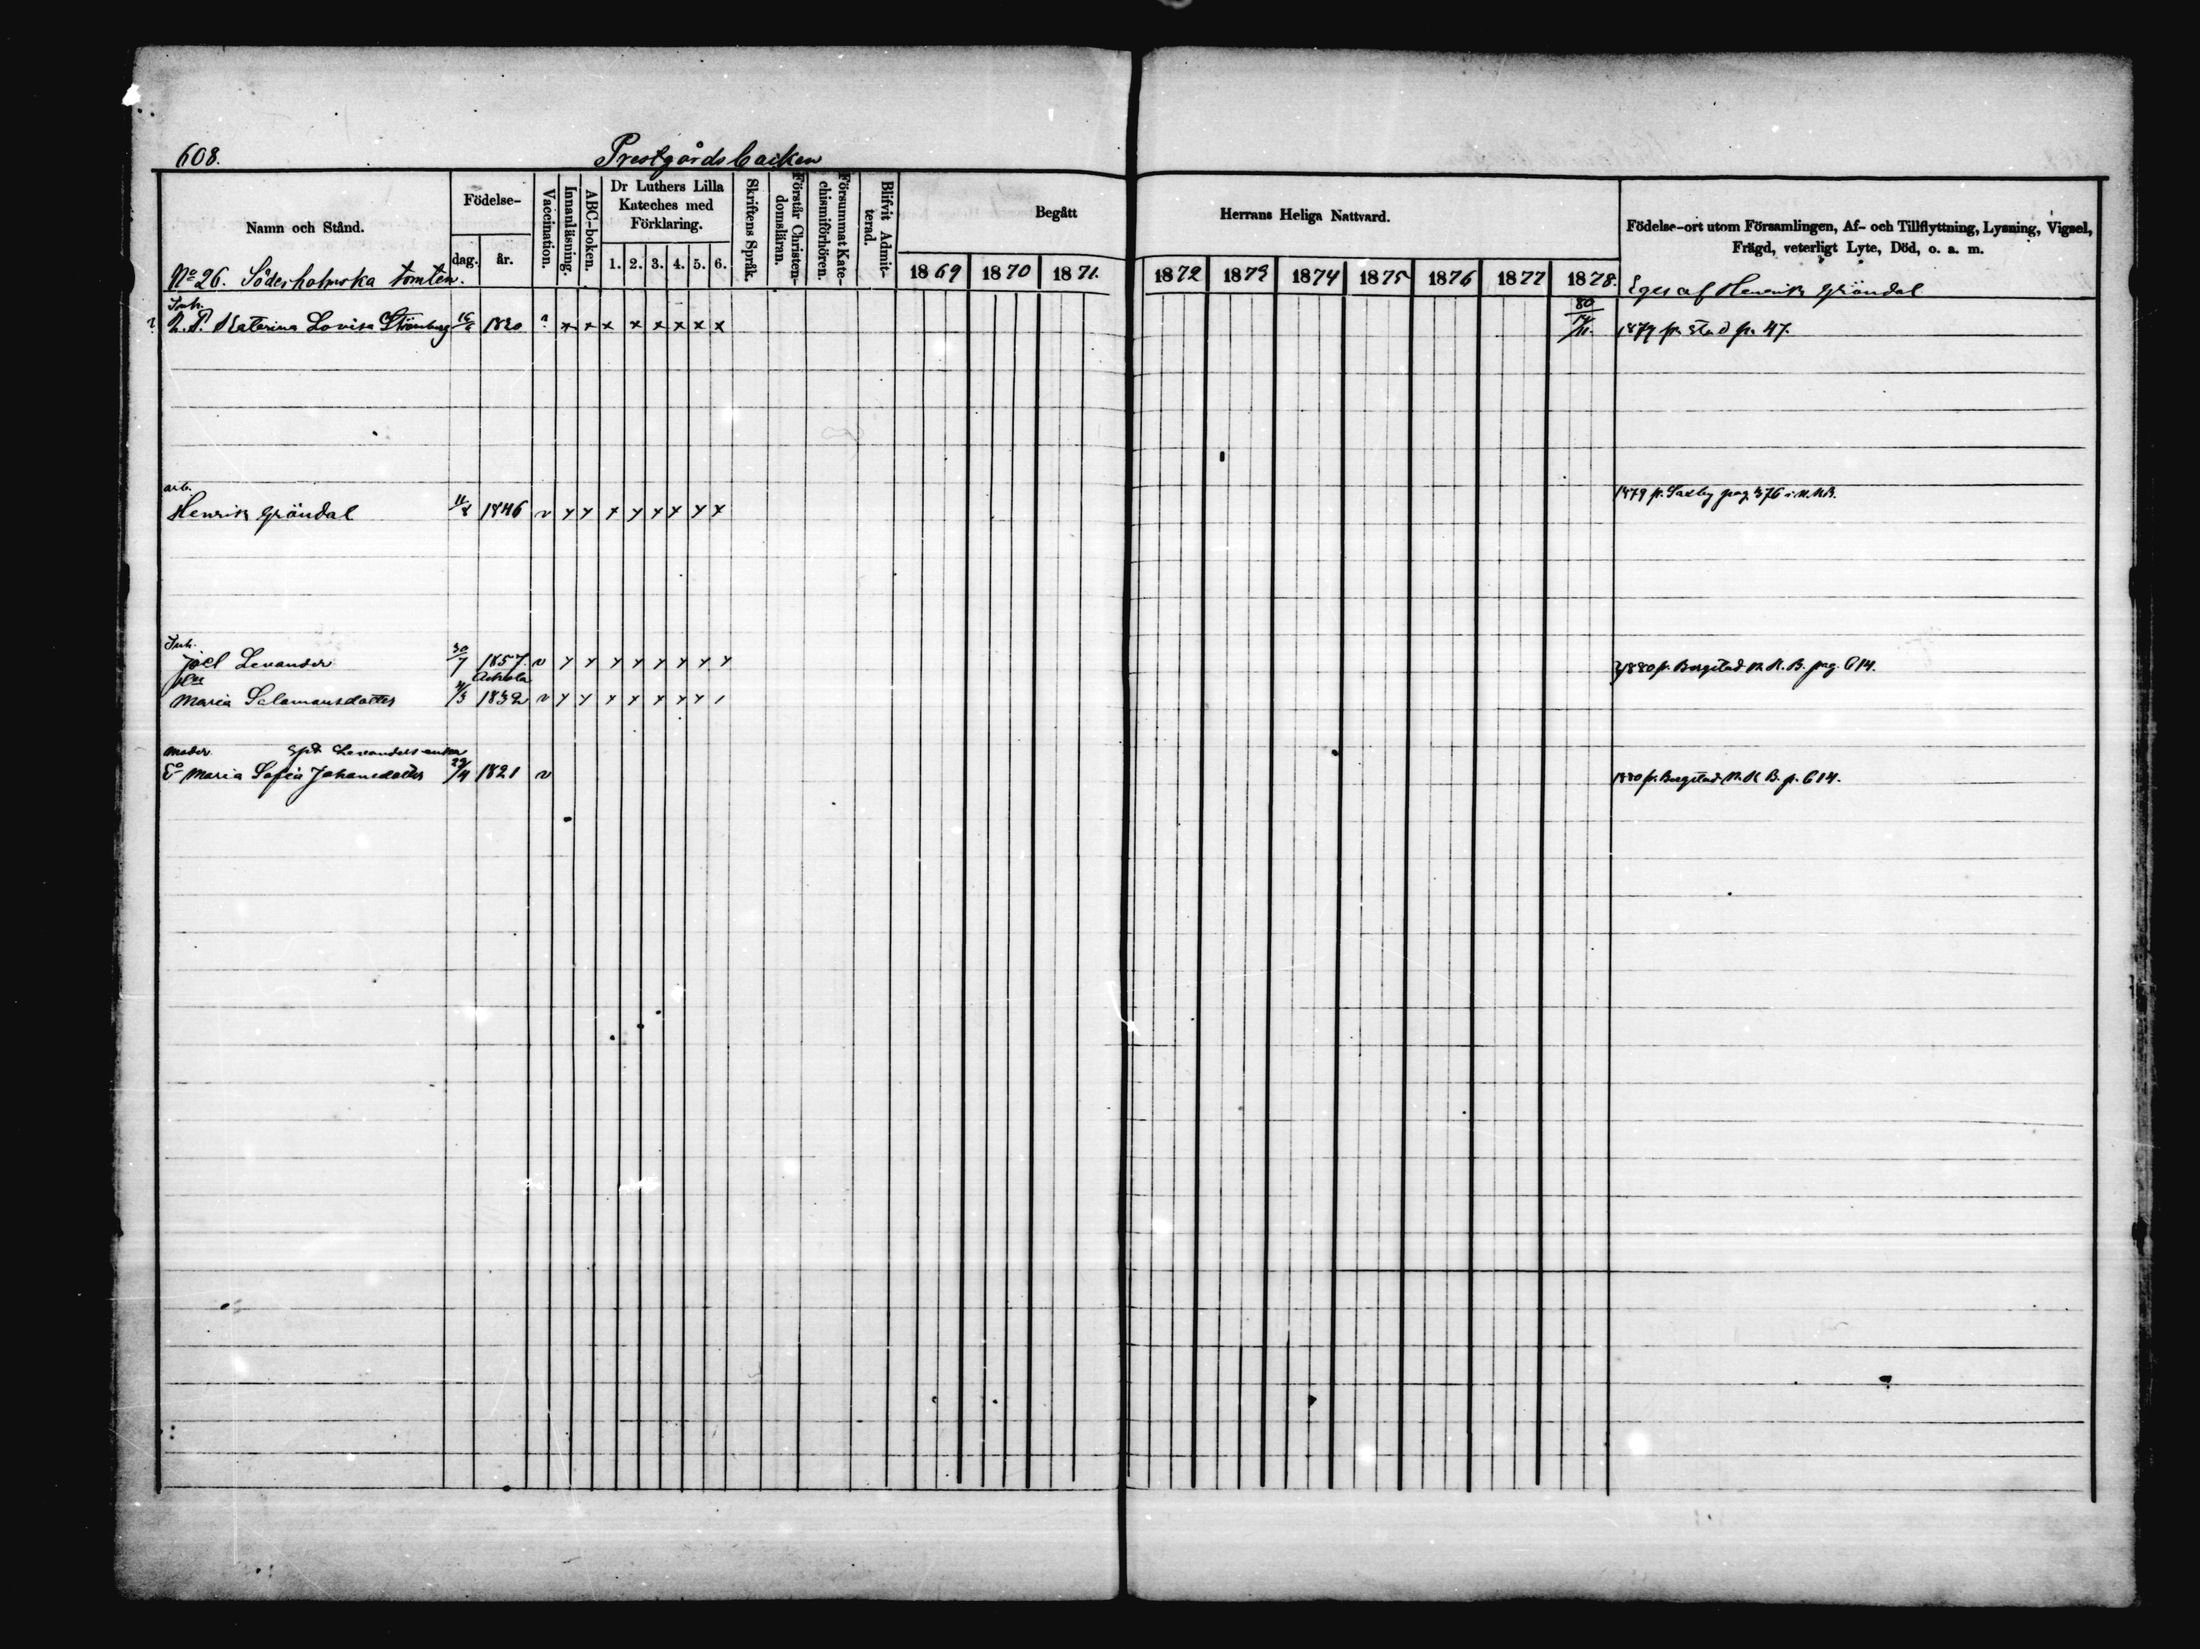 608.
Prestgårdsbacken
Namn och Stånd.
Födelse-
dag.
år.
Vaccination.
Innanläsning.
ABC-boken.
Dr Luthers Lilla
Kateches med
Förklaring.
1. 2. 3. 4. 5. 6.
Skriftens Språk.
Förstår Christen-
domsläran.
Försummat Kate-
chismiförhören.
Blifvit Admit-
terad.
Begått
Herrans Heliga Nattvard.
1869 1870 1871. 1872 1873 1874 1875 1876 1877 1878.
Födelse-ort utom Församlingen, Af- och Tillflyttning, Lysning, Vigsel,
Frägd, veterligt Lyte, Död, o. a. m.
No 26. Söderholmska tomten.
Eges af Henrik Gröndal
Inh.
Katarina Lovisa Strömberg 1820 x x x x x x x x 1879 fr. stad p. 47.
arb.
1879 fr. Saxby pag. 376 i N.K.B.
Henrik Gröndal 1846 v x x x x x x x x
Inh.
Joel Levander 30/7 1857. v x x x x x x x x 1880 fr. Borgstad N. K. B. pag. 614.
Askola
Maria Salamonsdotter 1832 v x x x x x x x
moder Levanders enka
Maria Sofia Johansdotter 29/4 1821 v 1880 fr. Borgstad N. K. B. p. 614.